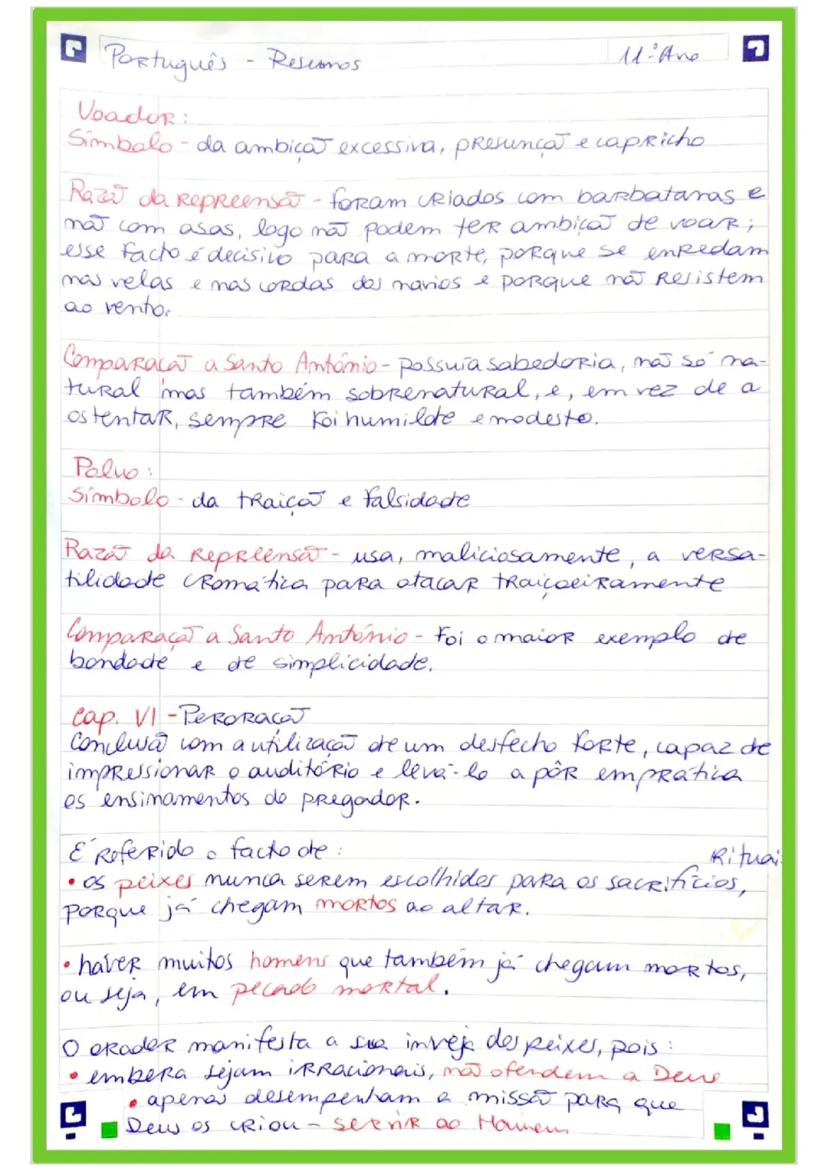 Português - Resumos 11º Ano
Voador:
Símbolo - da ambição excessiva, presunção e capricho
Razão da repreensão - foram criados com barbatanas e
não com asas, logo não podem ter ambição de voar;
esse facto é decisivo para a morte, porque se enredam
nas velas e nas cordas dos navios e porque não resistem
ao vento.
Comparação a Santo António - possuía sabedoria, não só na-
tural mas também sobrenatural, e, em vez de a
ostentar, sempre foi humilde e modesto.
Polvo:
Símbolo - da traição e falsidade
Razão da repreensão - usa, maliciosamente, a versa-
tilidade cromática para atacar traiçoeiramente
Comparação a Santo António - Foi o maior exemplo de
bondade e de simplicidade.
Cap. VI - Peroração
Conclusão com a utilização de um desfecho forte, capaz de
impressionar o auditório e levá-lo a pôr em prática
os ensinamentos do pregador.
É referido o facto de: Rituai
• os peixes nunca serem escolhidos para os sacrifícios,
porque já chegam mortos ao altar.
• haver muitos homens que também já chegam mortos,
ou seja, em pecado mortal.
O orador manifesta a sua inveja dos peixes, pois:
• embora sejam irracionais, não ofendem a Deus
• apenas desempenham a missão para que
Deus os criou - servir ao Homem